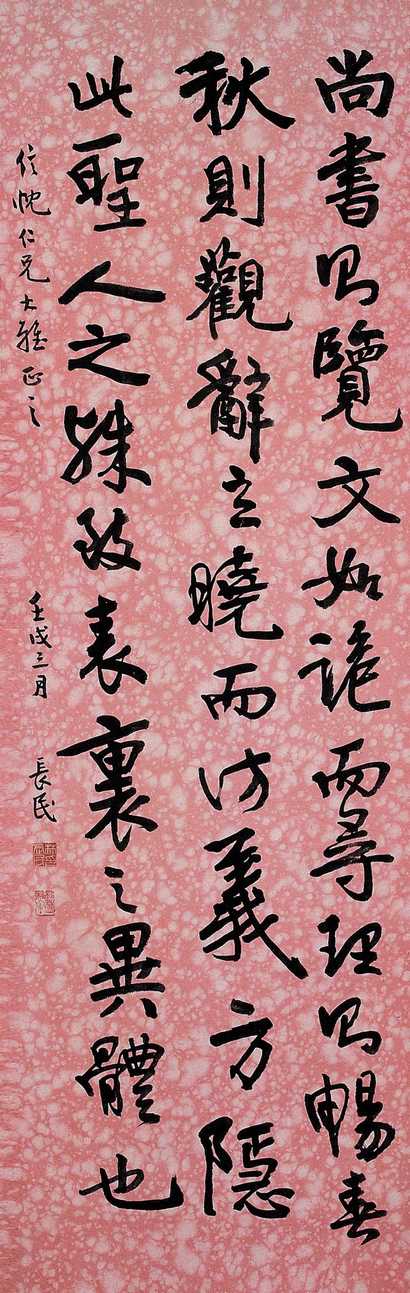 尚書則覽文如詭而尋理則暢春
秋則觀辭立曉而訪義方隱
此聖人之殊致表裏之異體也
信忱仁兄大雅正之
壬戌三月 長民